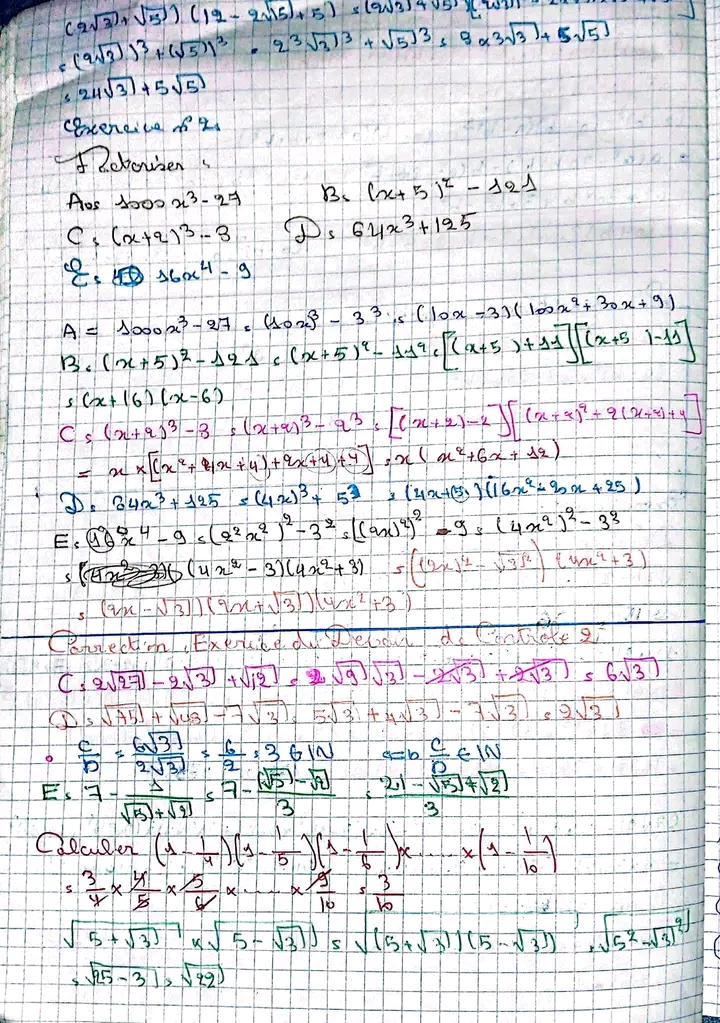 (2√3+√5)(12-2√15+5) = (2√3+√5)
= (2√3)³+(√5)³ = 2³√3³ + √5³ = 8×3√3+5√5
= 24√3+5√5
Exercice n°2:
Factoriser :
A = 1000x³-27 B = (x+5)² - 121
C = (x+2)³-8 D = 64x³+125
E = 16x⁴-9
A = 1000x³-27 = (10x)³ - 3³ = (10x-3)(100x²+30x+9)
B = (x+5)²-121 = (x+5)²-11² = [(x+5)+11][(x+5)-11]
= (x+16)(x-6)
C = (x+2)³-8 = (x+2)³-2³ = [(x+2)-2][(x+2)²+2(x+2)+4]
= x×[(x²+4x+4)+2x+4+4] = x(x²+6x+12)
D = 64x³+125 = (4x)³+5³ = (4x+5)(16x²-20x+25)
E = 16x⁴-9 = (2²x²)²-3² = [(2x)²]²-9 = (4x²)²-3²
= (4x²-3)(4x²+3) = ((2x)²-√3²)(4x²+3)
= (2x-√3)(2x+√3)(4x²+3)
Correction Exercice du Devoir de Contrôle 2
C = 2√27-2√3+√12 = 2√9√3-2√3+2√3 = 6√3
D = √75+√48-7√3 = 5√3+4√3-7√3 = 2√3
• C/D = 6√3/2√3 = 6/2 = 3 ∈ IN C/D ∈ IN
E = 7 - 1/(√5+√2) = 7 - (√5-√2)/3 = (21-√5+√2)/3
Calculer (1-1/4)(1-1/5)(1-1/6)×.....×(1-1/10)
= 3/4×4/5×5/6×.....×9/10 = 3/10
√5+√3 × √5-√3 = √(5+√3)(5-√3) = √5²-√3²
= √25-3 = √22